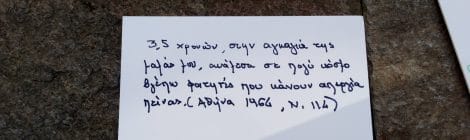 3,5 χρονών, στην αγκαλιά της
μαμάς μου, ανάμεσα σε πολύ κόσμο
βλέπω φοιτητές που κάνουν απεργία
πείνας. (Αθήνα 1966, Ν. 114)